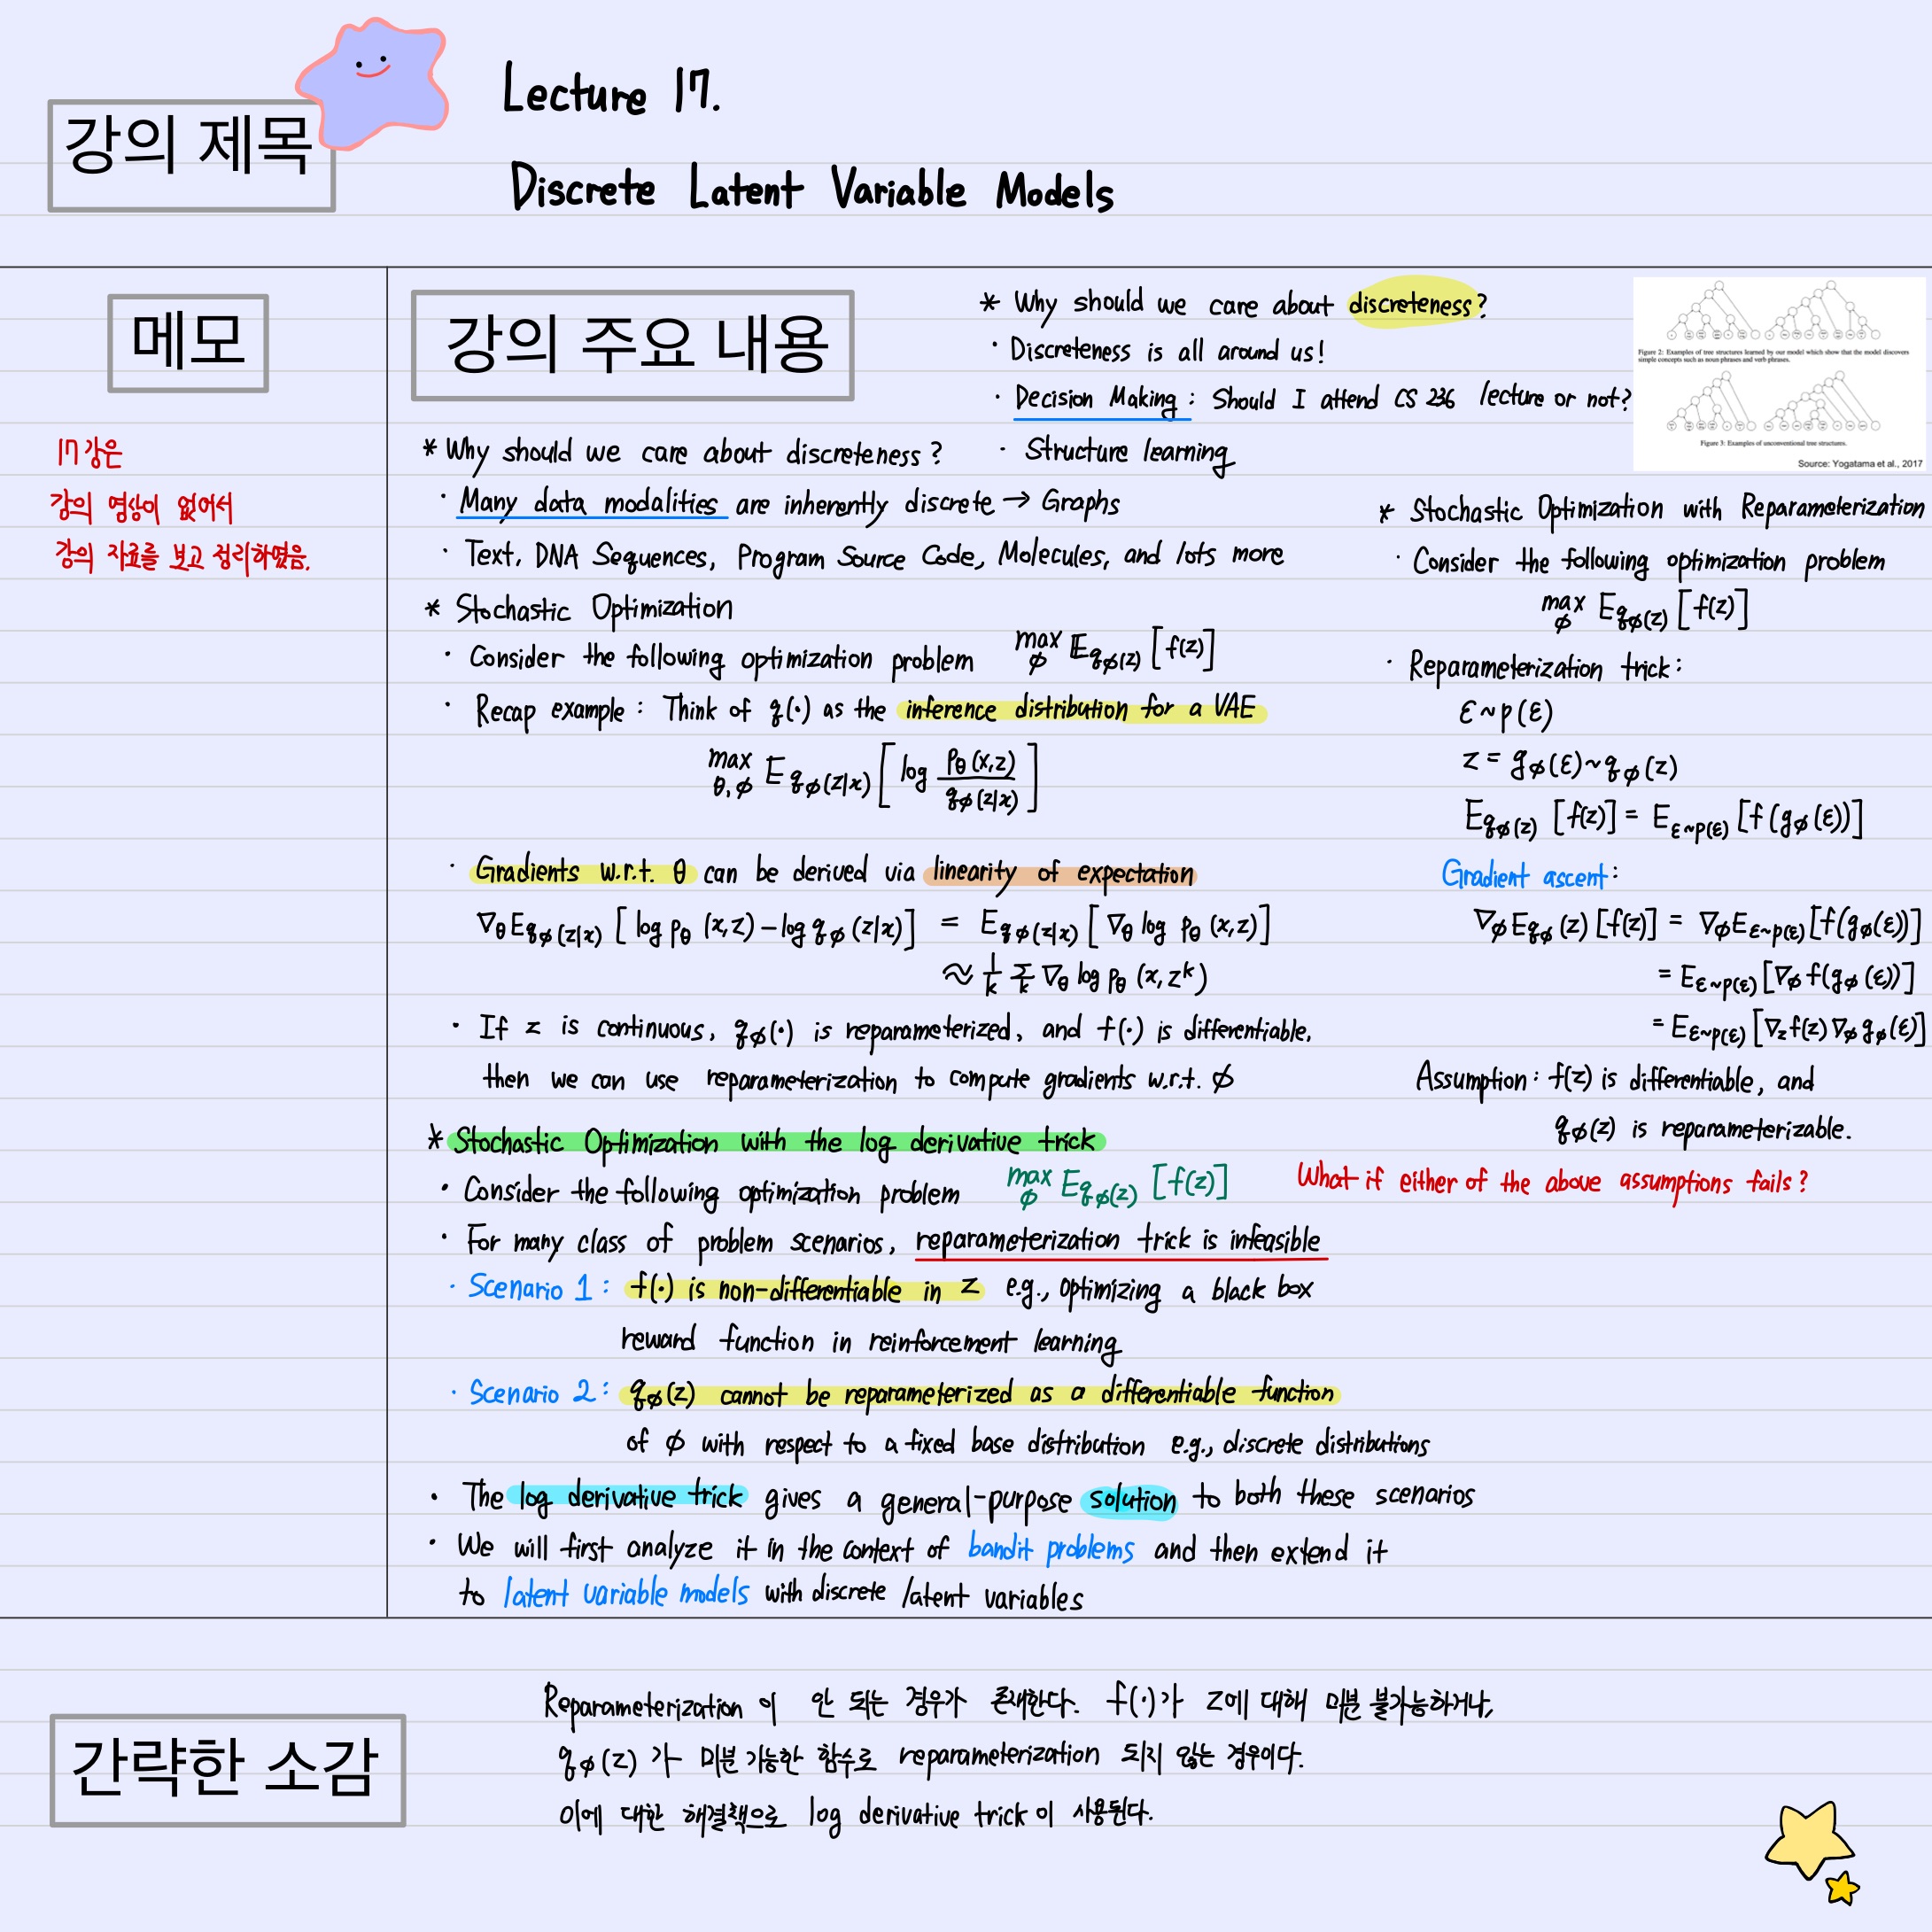 강의 제목
Lecture 17.
Discrete Latent Variable Models
메모
17강은
강의 영상이 없어서
강의 자료를 보고 정리하였음.
강의 주요 내용
* Why should we care about discreteness?
· Discreteness is all around us!
· Decision Making : Should I attend CS 236 lecture or not?
· Structure learning
Figure 2: Examples of tree structures learned by our model which show that the model discovers
simple concepts such as noun phrases and verb phrases.
Figure 3: Examples of unconventional tree structures.
Source: Yogatama et al., 2017
* Why should we care about discreteness?
· Many data modalities are inherently discrete → Graphs
· Text, DNA Sequences, Program Source Code, Molecules, and lots more
* Stochastic Optimization
· Consider the following optimization problem max_ϕ E_{qϕ(z)} [f(z)]
· Recap example : Think of q(·) as the inference distribution for a VAE
max_{θ,ϕ} E_{qϕ(z|x)} [log pθ(x,z) / qϕ(z|x)]
· Gradients w.r.t. θ can be derived via linearity of expectation
∇θ E_{qϕ(z|x)} [log pθ (x,z) – log qϕ (z|x)] = E_{qϕ(z|x)} [∇θ log pθ (x,z)]
≈ 1/k Σ_k ∇θ log pθ (x, z^k)
· If z is continuous, qϕ(·) is reparameterized, and f(·) is differentiable,
then we can use reparameterization to compute gradients w.r.t. ϕ
* Stochastic Optimization with Reparameterization
· Consider the following optimization problem
max_ϕ E_{qϕ(z)} [f(z)]
· Reparameterization trick :
ε ~ p(ε)
z = gϕ(ε) ~ qϕ(z)
E_{qϕ(z)} [f(z)] = E_{ε~p(ε)} [f(gϕ(ε))]
Gradient ascent :
∇ϕ E_{qϕ(z)} [f(z)] = ∇ϕ E_{ε~p(ε)} [f(gϕ(ε))]
= E_{ε~p(ε)} [∇ϕ f(gϕ(ε))]
= E_{ε~p(ε)} [∇z f(z) ∇ϕ gϕ(ε)]
Assumption : f(z) is differentiable, and
qϕ(z) is reparameterizable.
What if either of the above assumptions fails?
* Stochastic Optimization with the log derivative trick
· Consider the following optimization problem max_ϕ E_{qϕ(z)} [f(z)]
· For many class of problem scenarios, reparameterization trick is infeasible
· Scenario 1 : f(·) is non-differentiable in z e.g., optimizing a black box
reward function in reinforcement learning
· Scenario 2 : qϕ(z) cannot be reparameterized as a differentiable function
of ϕ with respect to a fixed base distribution e.g., discrete distributions
· The log derivative trick gives a general-purpose solution to both these scenarios
· We will first analyze it in the context of bandit problems and then extend it
to latent variable models with discrete latent variables
간략한 소감
Reparameterization 이 안 되는 경우가 존재한다. f(·)가 z에 대해 미분 불가능하거나,
qϕ(z) 가 미분 가능한 함수로 reparameterization 되지 않는 경우이다.
이에 대한 해결책으로 log derivative trick이 사용된다.